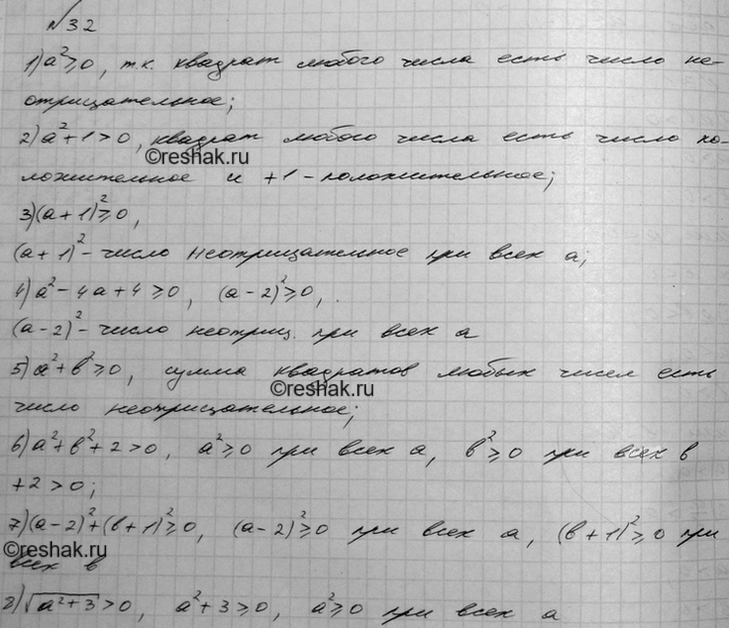 №32
1) a²≥0, т.к. квадрат любого числа есть число не-
отрицательное;
2) a²+1>0, квадрат любого числа есть число по-
©reshak.ru
ложительное и +1 - положительное;
3) (a+1)²≥0,
(a+1)² - число неотрицательное при всех a;
4) a²-4a+4≥0, (a-2)²≥0,
(a-2)² - число неотриц. при всех a
5) a²+b²≥0, сумма квадратов любых чисел есть
©reshak.ru
число неотрицательное;
6) a²+b²+2>0, a²≥0 при всех a, b²≥0 при всех b
+2>0;
7) (a-2)²+(b+1)²≥0, (a-2)²≥0 при всех a, (b+1)²≥0 при
©reshak.ru
всех b
8) √a²+3>0, a²+3≥0, a²≥0 при всех a